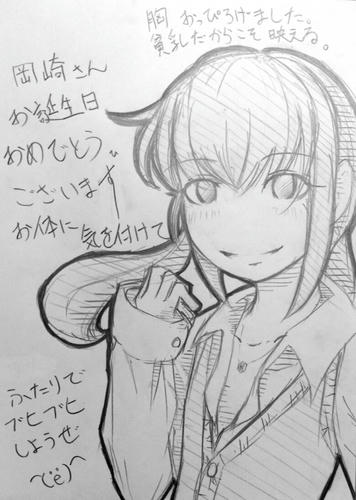 胸 おっぴろげました。
貧乳だからこそ 映える。
岡崎さん
お誕生日
おめでとう
ございます
お体に 気を付けて
ふたりで
ブヒブヒ
しようぜ